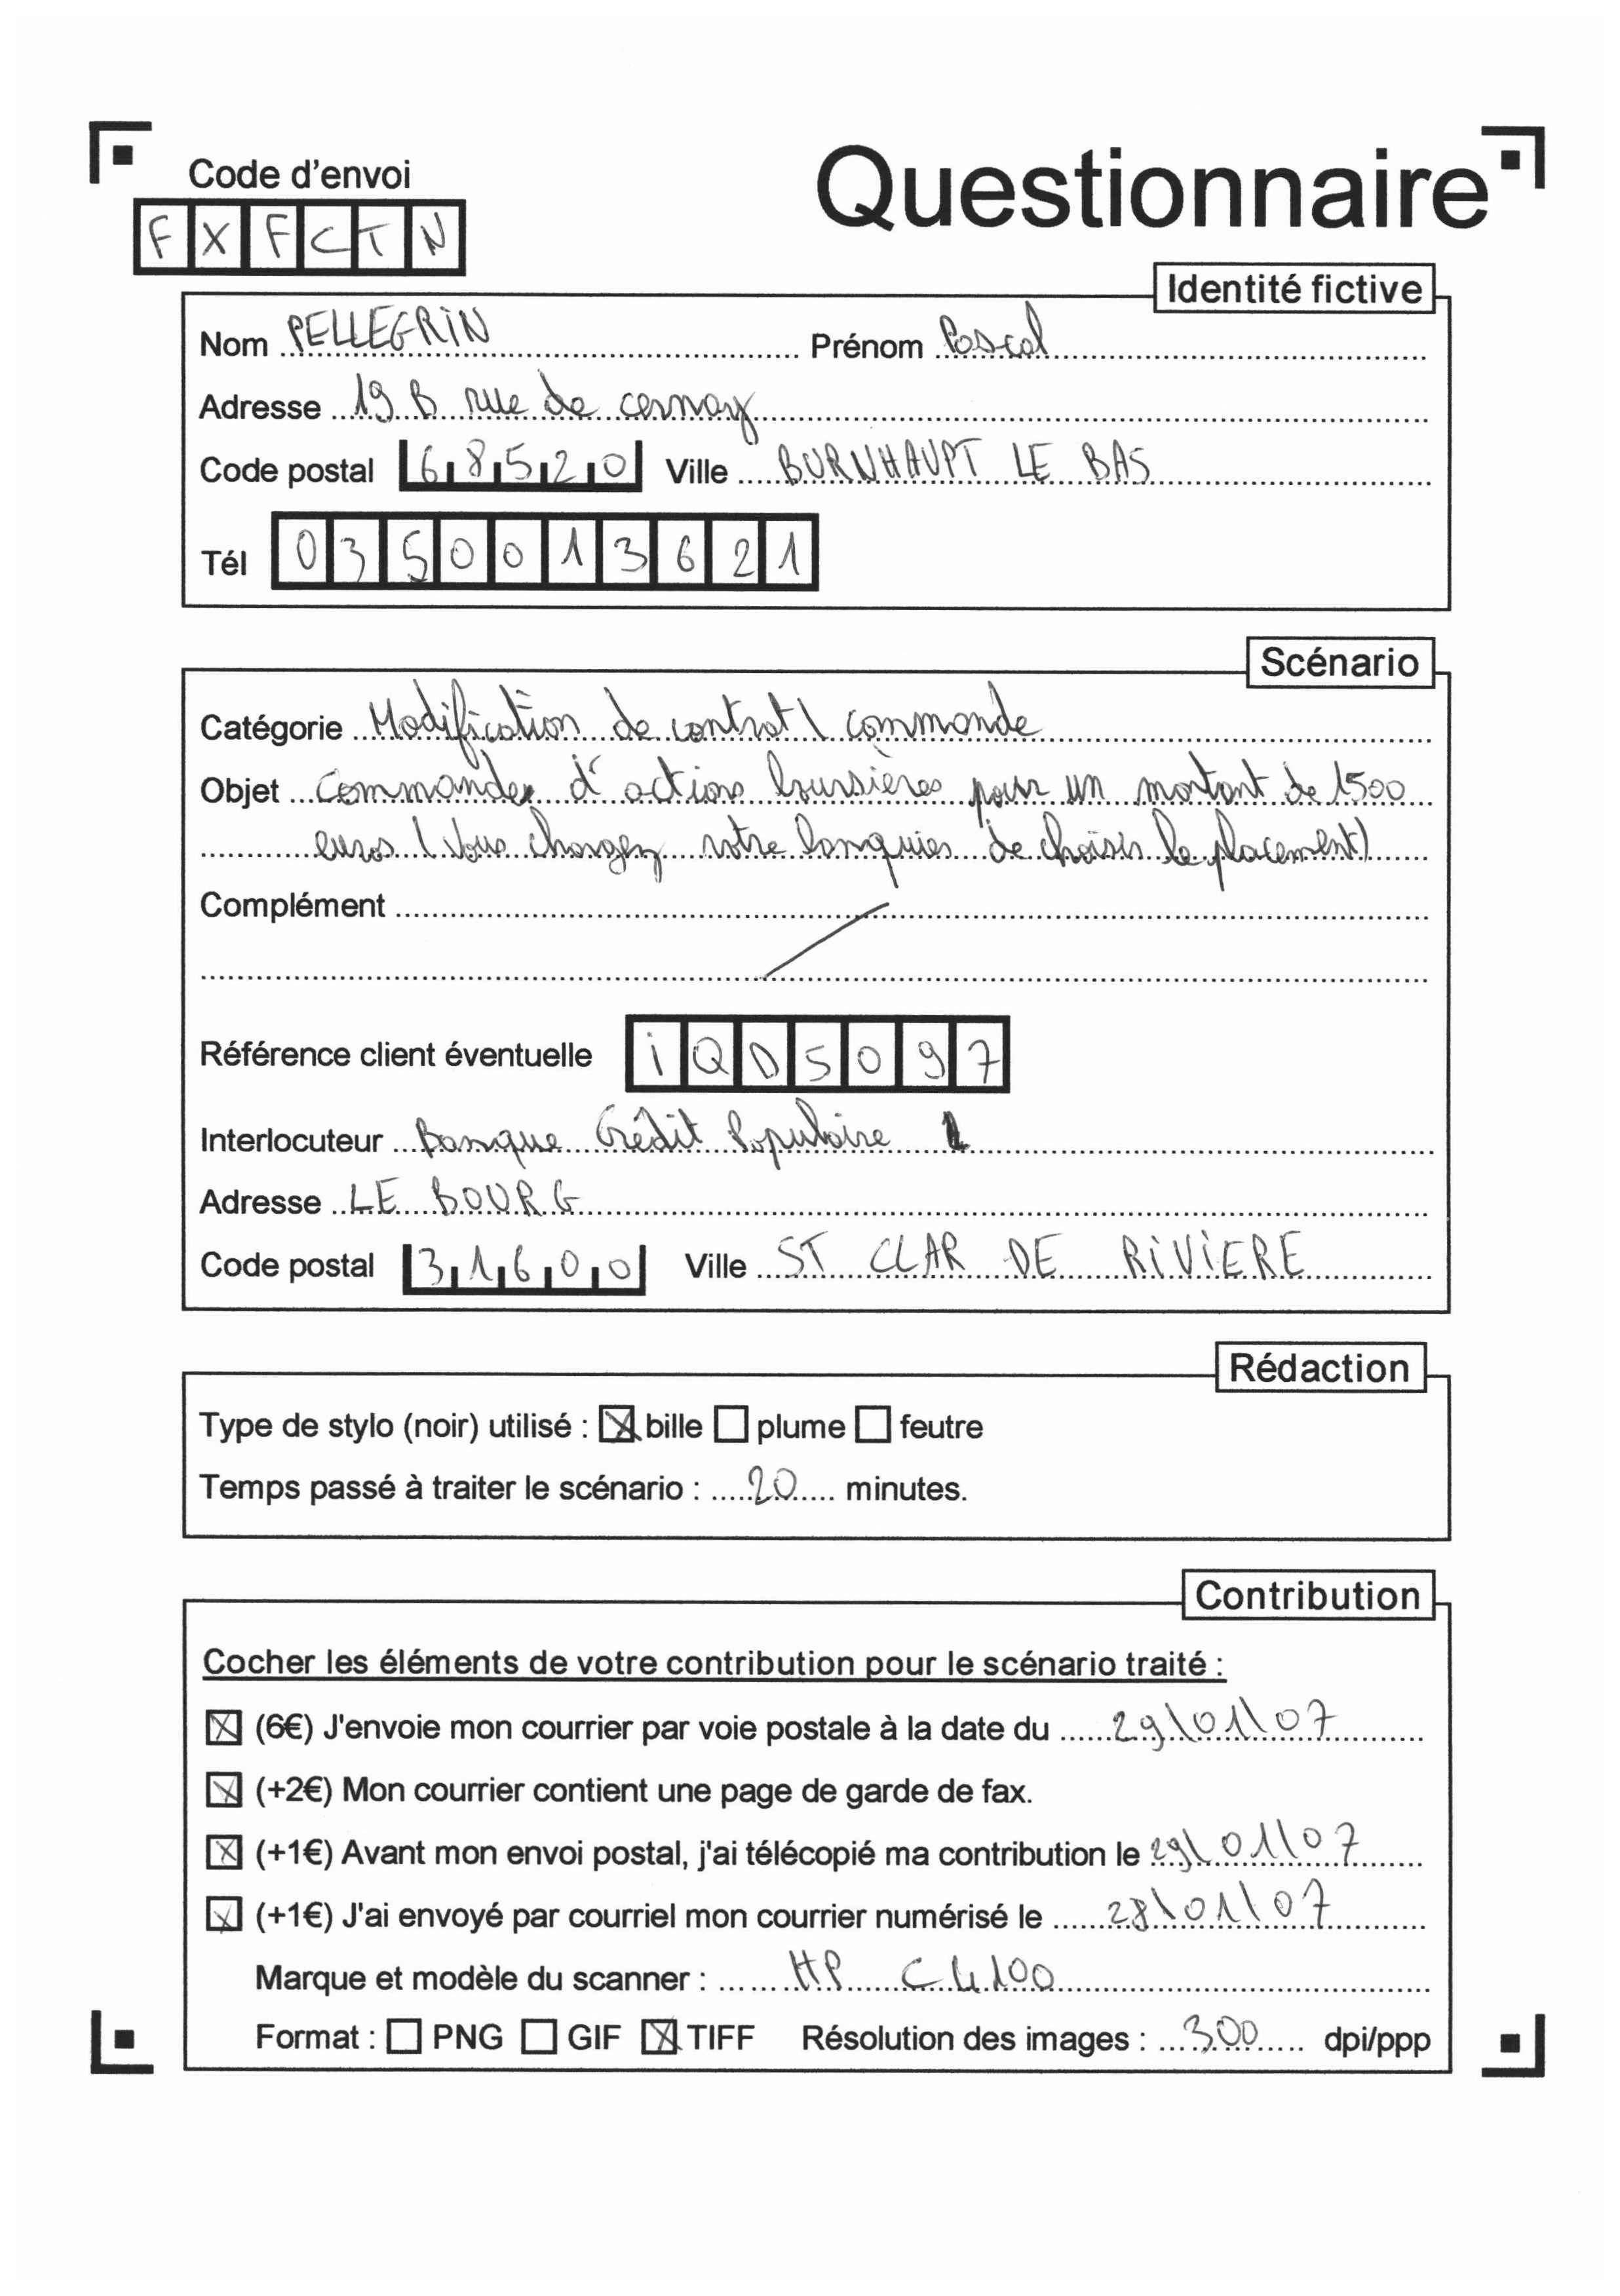 Questionnaire
Code d'envoi
F X F C T N
Identité fictive
Nom PELLEGRIN Prénom Pascal
Adresse 19 B rue de cernay
Code postal 68520 Ville BURNHAUPT LE BAS
Tél 0350013621
Scénario
Catégorie Modification de contrat \ commande
Objet Commander d'actions boursières pour un montant de 1500
euros (Vous chargez votre banquier de choisir le placement)
Complément
Référence client éventuelle iQD5097
Interlocuteur Banque Crédit Populaire
Adresse LE BOURG
Code postal 31600 Ville ST CLAR DE RiViERE
Rédaction
Type de stylo (noir) utilisé : ☒ bille ☐ plume ☐ feutre
Temps passé à traiter le scénario : 20 minutes.
Contribution
Cocher les éléments de votre contribution pour le scénario traité :
☒ (6€) J'envoie mon courrier par voie postale à la date du 29\01\07
☒ (+2€) Mon courrier contient une page de garde de fax.
☒ (+1€) Avant mon envoi postal, j'ai télécopié ma contribution le 29\01\07
☒ (+1€) J'ai envoyé par courriel mon courrier numérisé le 28\01\07
Marque et modèle du scanner : HP C4100
Format : ☐ PNG ☐ GIF ☒ TIFF Résolution des images : 300 dpi/ppp